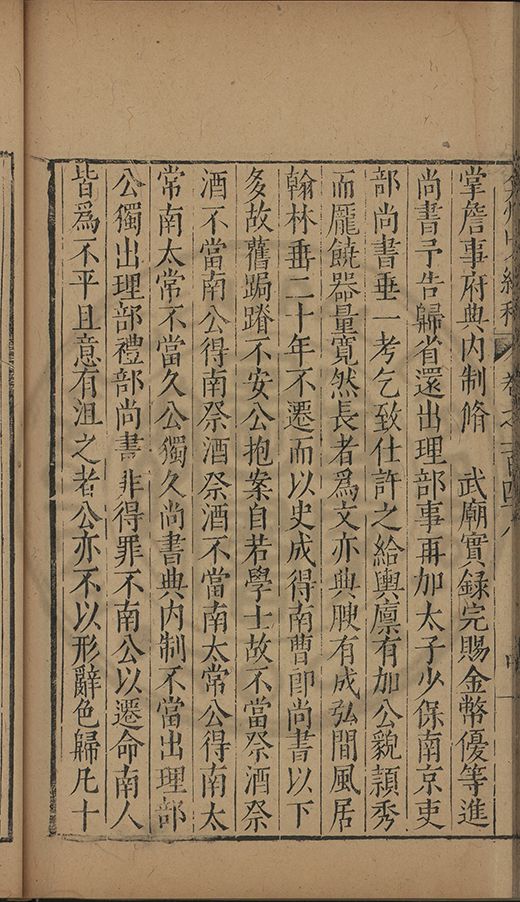 掌詹事府典内制脩　武廟實録完賜金幣優等進
尚書予告歸省還出理部事再加太子少保南京吏
部尚書垂一考乞致仕許之給輿廪有加公貌頴秀
而龎饒器量寛然長者爲文亦典腴有成弘間風居
翰林垂二十年不遷而以史成得南曹卽尚書以下
多故舊跼蹐不安公抱案自若學士故不當祭酒祭
酒不當南公得南祭酒祭酒不當南太常公得南太
常南太常不當久公獨久尚書典内制不當出理部
公獨出理部禮部尚書非得罪不南公以遷命南人
皆爲不平且意有沮之者公亦不以形辭色歸凡十